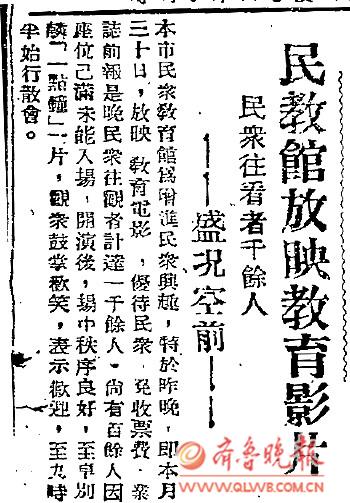 民教館放映教育影片
民衆往看者千餘人
——盛況空前——
本市民衆敎育館爲增進民衆興趣，特於昨晚，卽本月
三十日，放映敎育電影，優待民衆，免收票費，衆
誌前報是晚民衆往觀者計達一千餘人，尚有百餘人因
座位已滿未能入場，開演後，場中秩序良好，至卓別
麟「一點鐘」一片，觀衆鼓掌歡笑，表示歡迎，至九時
半始行散會。
齐鲁晚报
WWW.QLWB.COM.CN